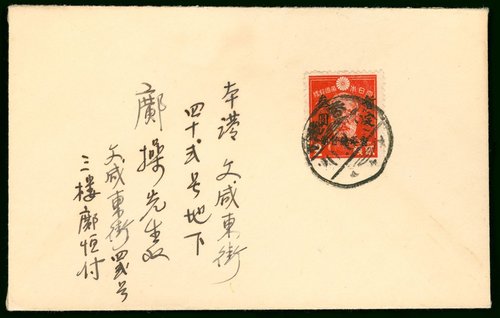 本港文咸東街
四十弍号地下
鄺操先生收
文咸東街四弍号
三楼鄺恒付
大日本帝國郵便